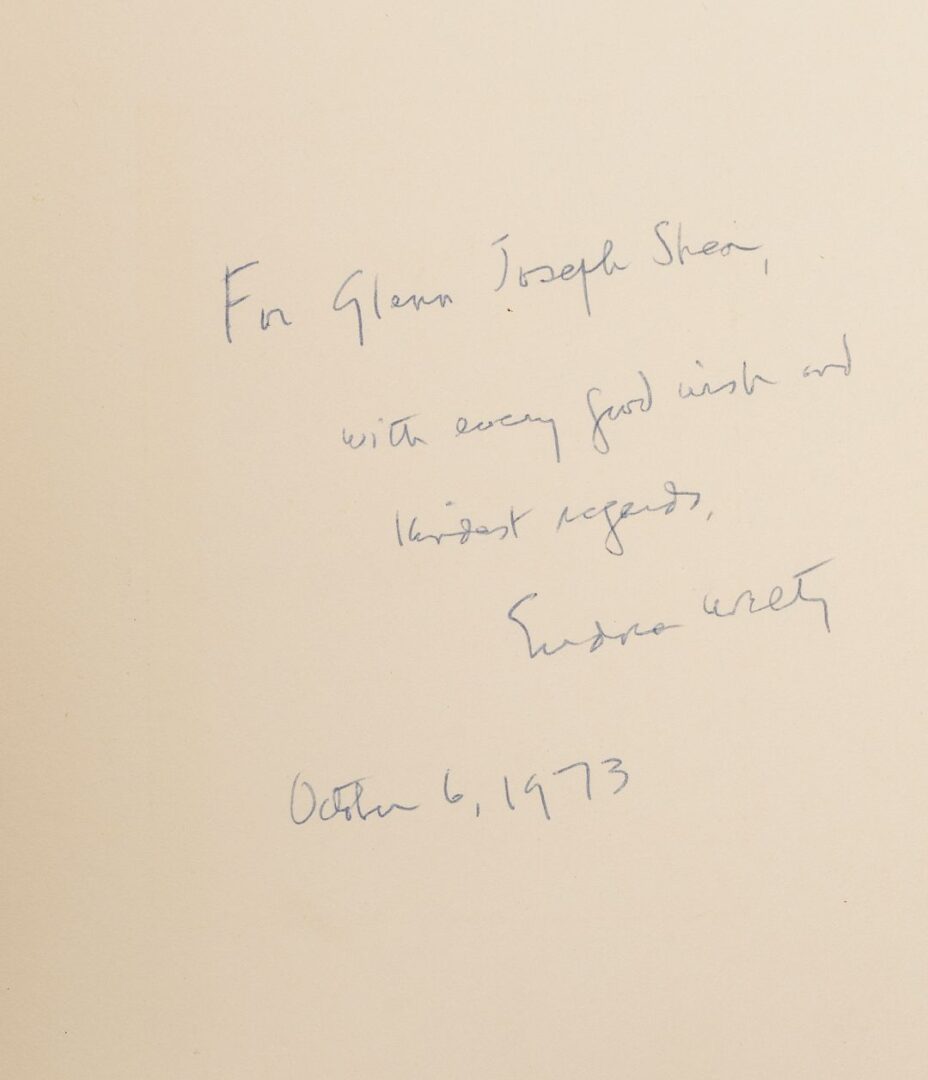 For Glenn Joseph Shea,
with every good wish and
kindest regards,
Eudora Welty
October 6, 1973